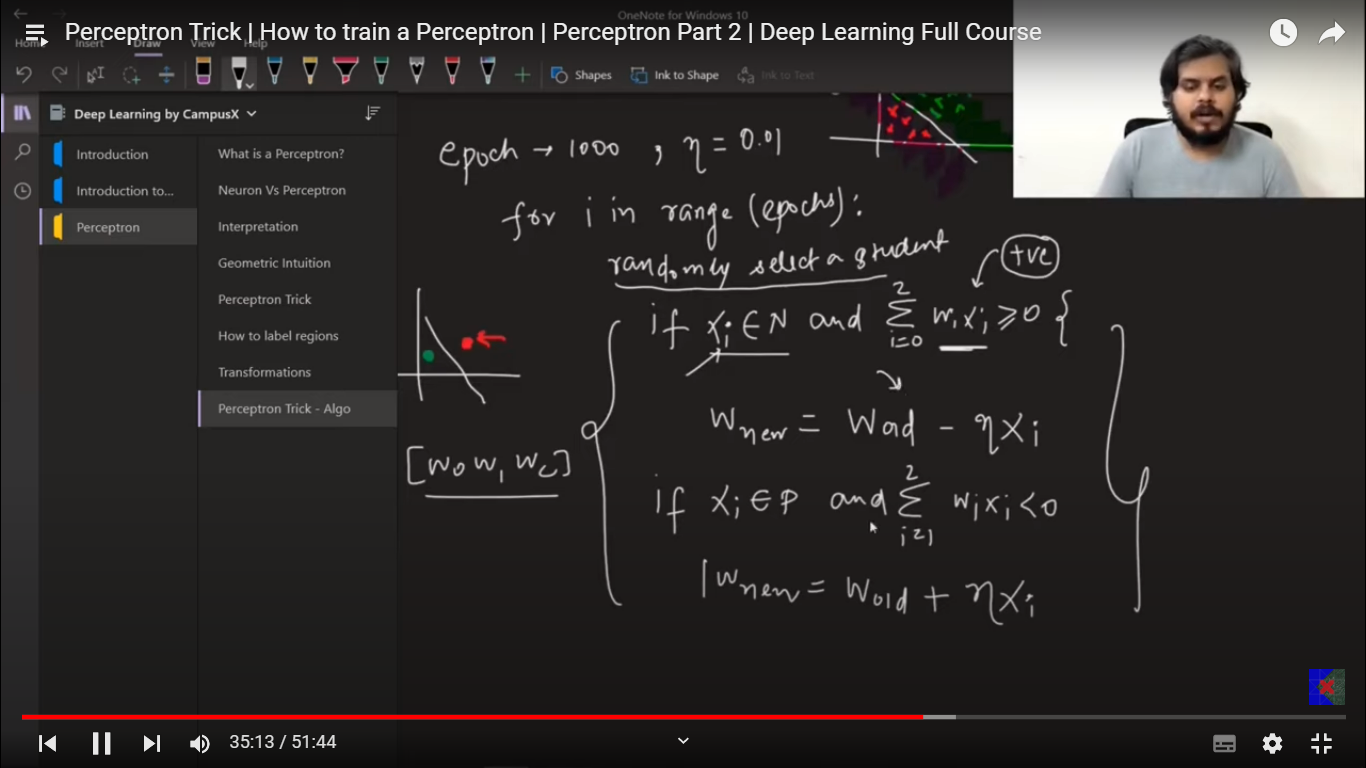 OneNote for Windows 10
Perceptron Trick | How to train a Perceptron | Perceptron Part 2 | Deep Learning Full Course
Home Insert Draw View Help
Shapes Ink to Shape Ink to Text
Deep Learning by CampusX
Introduction
Introduction to...
Perceptron
What is a Perceptron?
Neuron Vs Perceptron
Interpretation
Geometric Intuition
Perceptron Trick
How to label regions
Transformations
Perceptron Trick - Algo
epoch → 1000 , η = 0.01
for i in range (epochs):
randomly select a student
+ve
if xᵢ ∈ N and Σ_{i=0}^{2} wᵢxᵢ ≥ 0 {
W_new = W_old - ηxᵢ
[w₀ w₁ w₂]
if xᵢ ∈ P and Σ_{i=1}^{2} wᵢxᵢ < 0
W_new = W_old + ηxᵢ
35:13 / 51:44